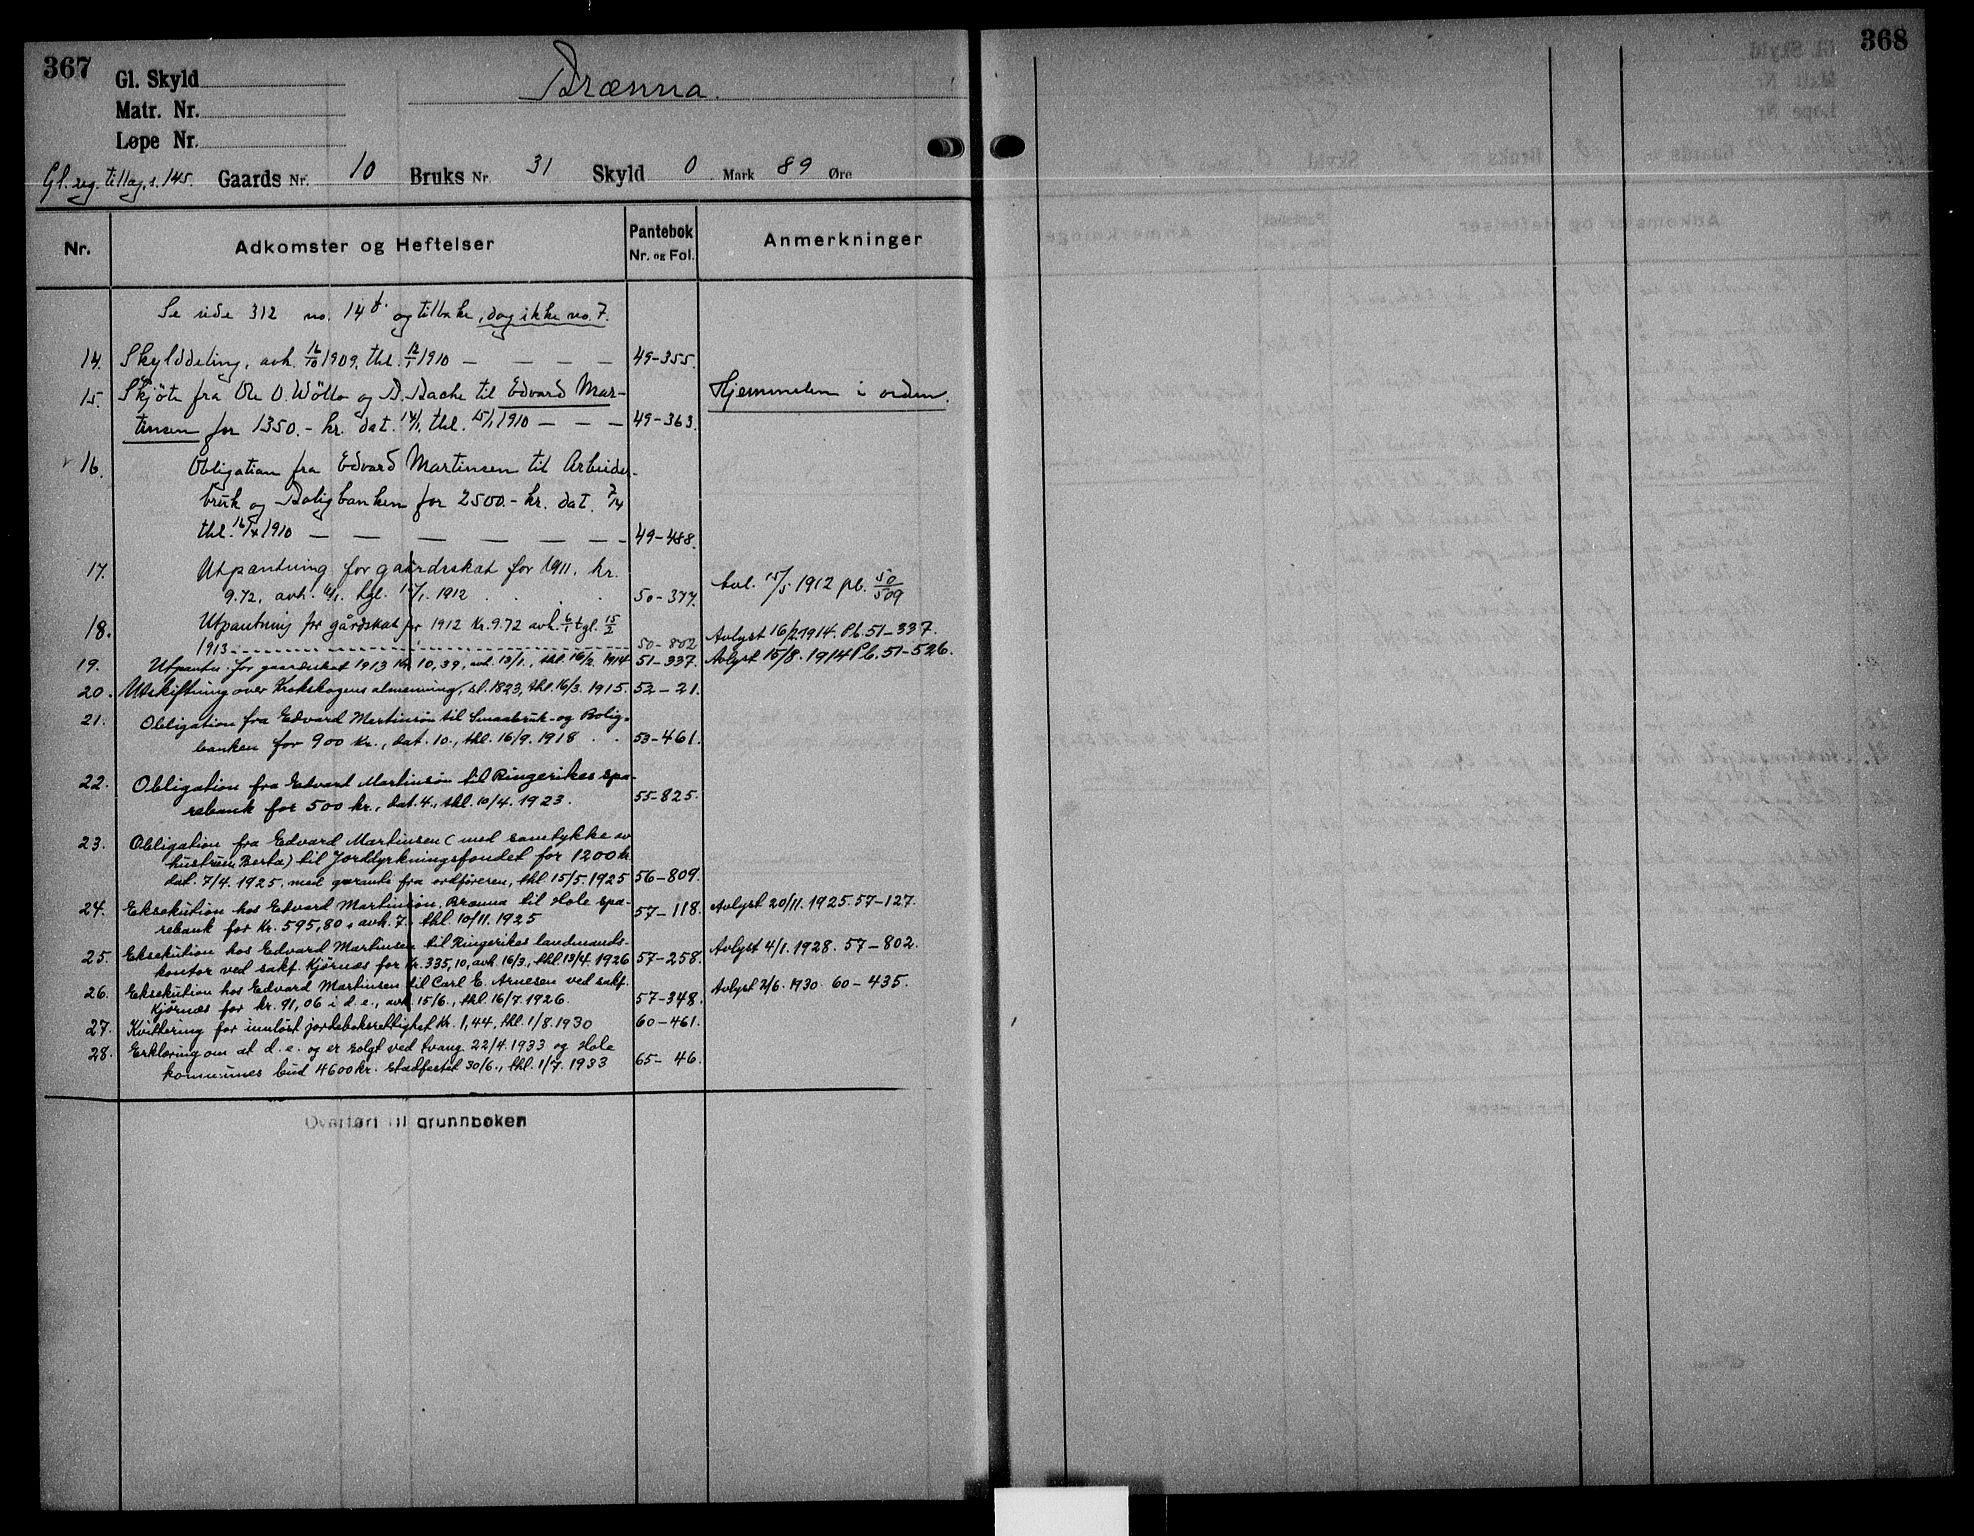 367
368
Gl. Skyld
Brænna.
Matr. Nr.
Løpe Nr.
Gl. reg. tillag, s. 145. Gaards Nr. 10 Bruks Nr. 31 Skyld 0 Mark 89 Øre
Nr. Adkomster og Heftelser Pantebok Nr. og Fol. Anmerkninger
Se side 312 no. 14 og tilbake, dog ikke no. 7.
14. Skylddeling, avh. 16/10 1909, thl. 12/1 1910 — — — — 49-355.
15. Skjöte fra Ole O. Wöllo og B. Bache til Edvard Mar- Hjemmelen i orden.
tinsen for 1350.- kr. dat. 14/1, thl. 15/1 1910 — — — 49-363.
16. Obligation fra Edvard Martinsen til Arbeider-
bruk og Boligbanken for 2500.- kr. dat. 7/4
thl. 16/4 1910 — — — — — — 49-488.
17. Utpantning for gaardsskat for 1911, kr.
9.72, avh. 6/1. tgl. 15/1. 1912 . . . 50-377. Avl. 15/5 1912 pb. 50/509
18. Utpantning for gårdskat for 1912 kr. 9.72 avh. 6/1 tgl. 15/2
1913 50-802 Avlyst 16/2 1914. Pb. 51-337.
19. Utpantn. for gaardskat 1913 Kr. 10,39, avh. 13/1., thl. 16/2. 1914 51-337. Avlyst 15/8. 1914 Pb. 51-526.
20. Utskiftning over Krokskogens almenning, sl. 1823, thl. 16/3. 1915. 52-21.
21. Obligation fra Edvard Martinsen til Smaabruk- og Bolig-
banken for 900 Kr., dat. 10., thl. 16/9. 1918 . . 53-461.
22. Obligation fra Edvard Martinsen til Ringerikes spa-
rebank for 500 kr., dat. 4., thl. 10/4. 1923. 55-825.
23. Obligation fra Edvard Martinsen (med samtykke av
hustruen Berta) til Jorddyrkningsfondet for 1200 kr.
dat. 7/4. 1925, med garanti fra ordføreren, thl 15/5. 1925 56-809.
24. Eksekution hos Edvard Martinsen, Brænna til Hole spa- Avlyst 20/11. 1925. 57-127.
rebank for Kr. 595,80, avh. 7., thl 10/11. 1925 57-118.
25. Eksekution hos Edvard Martinsen til Ringerikes landmands- Avlyst 4/1. 1928. 57-802.
kontor ved sakf. Kjørnæs for Kr. 335,10, avh. 16/3., thl. 13/4. 1926 57-258.
26. Eksekution hos Edvard Martinsen til Carl E. Arnesen ved sakf. Avlyst 2/6. 1930. 60-435.
Kjørnæs for kr. 91,06 i d. e., avh. 15/6., thl. 16/7. 1926. 57-348.
27. Kvittering for innløst jordeboksrettighet Kr. 1,44, thl. 1/8. 1930 60-461.
28. Erklæring om at d. e. og er solgt ved tvang 22/4. 1933 og Hole
kommunes bud 4600 kr. stadfestet 30/6., thl. 1/7. 1933 65-46.
Overført til grunnboken